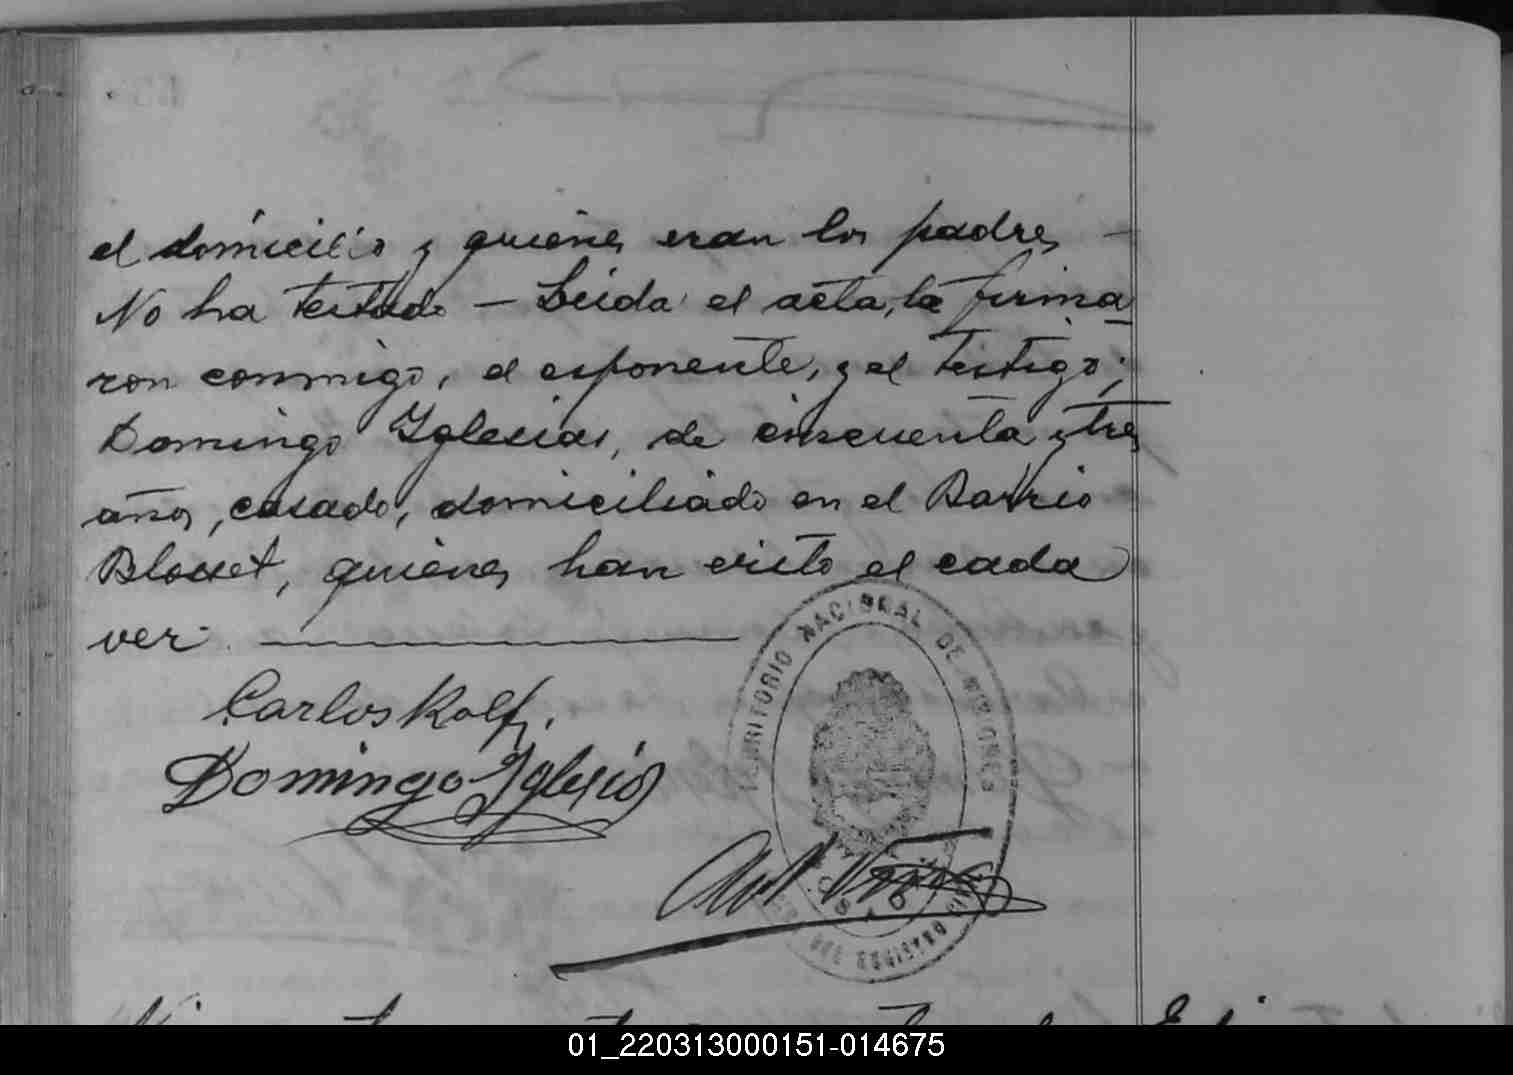 el domicilio y quienes eran los padres —
No ha testado — Leida el acta, la firma
ron conmigo, el esponente, y el testigo;
Domingo Iglesias, de cincuenta y tres
años, casado, domiciliado en el Barrio
Blosset, quienes han visto el cada
ver.
Carlos Rolf.
Domingo Iglesias
TERRITORIO NACIONAL DE MISIONES
01_220313000151-014675